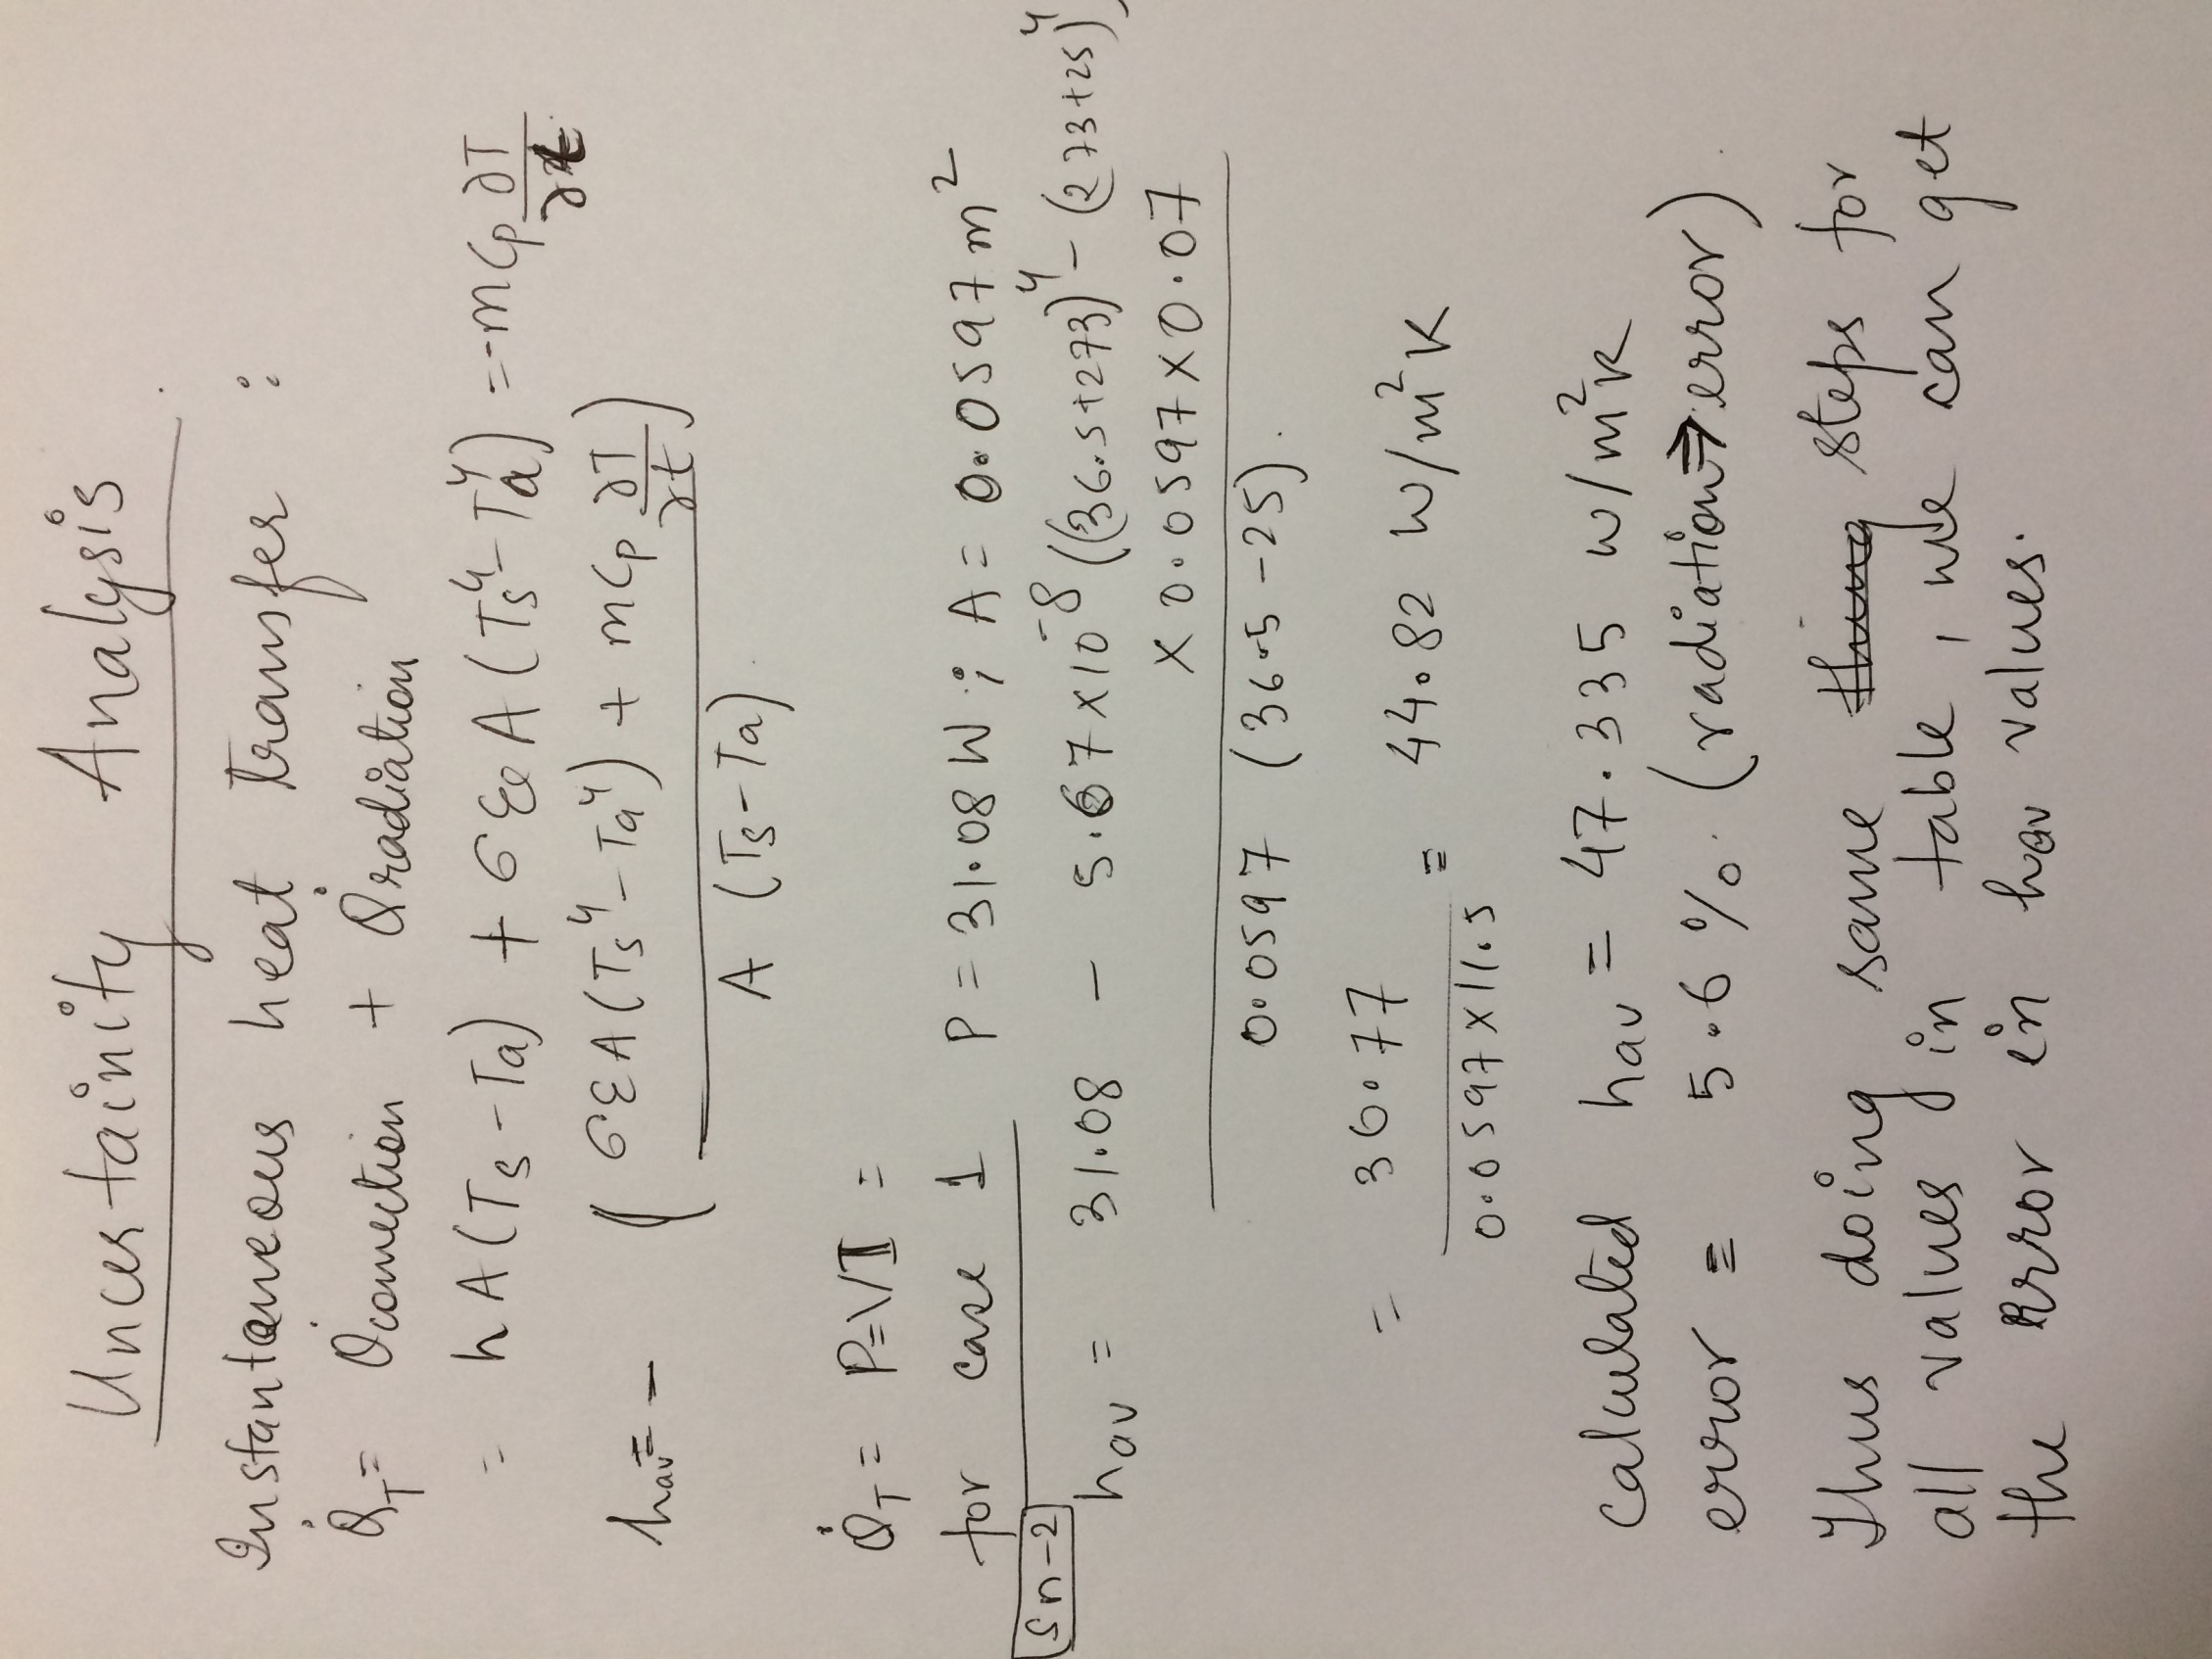 Uncertainity Analysis
Instantaneous heat transfer :
Q̇T = Q̇convection + Q̇radiation
= hA(Ts-Ta) + σεA(Ts⁴-Ta⁴) = -mCp ∂T/∂t
hav = - (σεA(Ts⁴-Ta⁴) + mCp ∂T/∂t) / A(Ts-Ta)
Q̇T = P=VI =
for case 1 P = 31.08 W ; A = 0.0597 m²
Sn-2
hav = 31.08 - 5.67 × 10⁻⁸ ((36.5+273)⁴ - (273+25)⁴)
× 0.0597 × 0.07
0.0597 (36.5-25).
= 30.77 / 0.0597 × 11.5 = 44.82 W/m²K
Calculated hav = 47.335 W/m²K
error = 5.6 %. (radiation → error)
Thus doing same thing steps for
all values in table, we can get
the error in hav values.